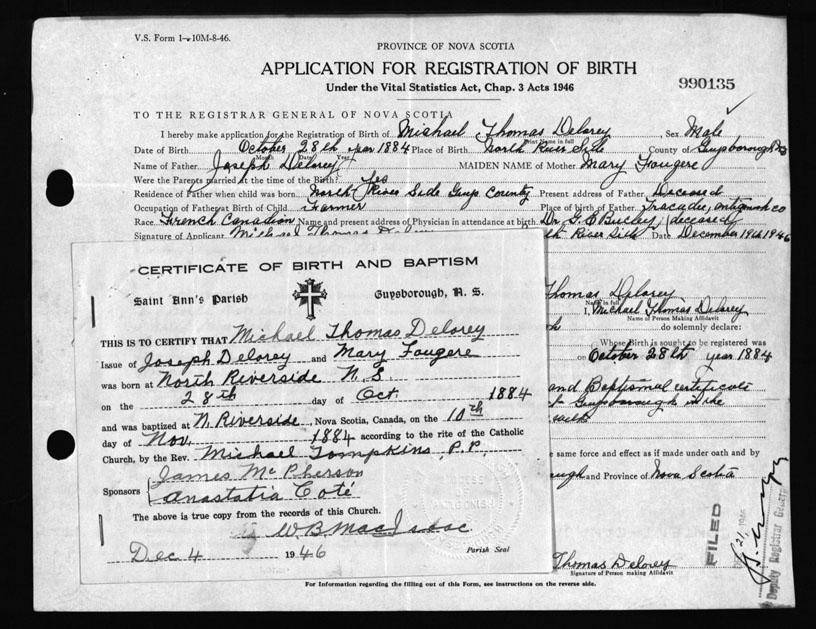 V.S. Form 1-10M-8-46.
PROVINCE OF NOVA SCOTIA
APPLICATION FOR REGISTRATION OF BIRTH
Under the Vital Statistics Act, Chap. 3 Acts 1946
990135
TO THE REGISTRAR GENERAL OF NOVA SCOTIA
I hereby make application for the Registration of Birth of Michael Thomas Delorey Sex Male
Print Name in full
Date of Birth October 28th year 1884 Place of Birth North River Side County of Guysborough NS
Month Date Year
Name of Father Joseph Delorey MAIDEN NAME of Mother Mary Fougere
Were the Parents married at the time of the Birth? Yes
Residence of Father when child was born North River Side Guys. County Present address of Father Deceased
Occupation of Father at Birth of Child Farmer Place of Birth of Father Tracadie, Antigonish Co
Race French Canadian Name and present address of Physician in attendance at birth Dr. G. E. Buckley (deceased)
Signature of Applicant Michael Thomas Delorey th River Side Date December 19th 1946
CERTIFICATE OF BIRTH AND BAPTISM
Saint Ann's Parish Guysborough, N. S.
THIS IS TO CERTIFY THAT Michael Thomas Delorey
Issue of Joseph Delorey and Mary Fougere
was born at North Riverside N.S.
on the 28th day of Oct. 1884
and was baptized at N. Riverside, Nova Scotia, Canada, on the 10th
day of Nov. 1884 according to the rite of the Catholic
Church, by the Rev. Michael Tompkins, P.P.
Sponsors James McPherson
Anastatia Coté
The above is true copy from the records of this Church.
W.B. MacIsaac
Dec 4 1946 Parish Seal
Thomas Delorey
Name in full
I, Michael Thomas Delorey
Name of Person Making Affidavit
do solemnly declare:
Whose Birth is sought to be registered was
on October 28th year 1884
and Baptismal certificate
Guysborough in the
same force and effect as if made under oath and by
ough and Province of Nova Scotia
FILED
21, 1946
Deputy Registrar General
Thomas Delorey
Signature of Person making Affidavit
For Information regarding the filling out of this Form, see instructions on the reverse side.